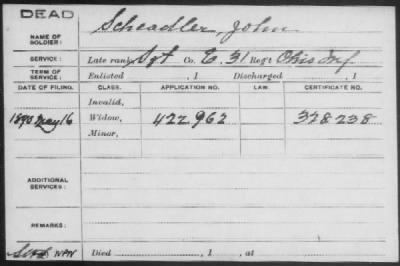 DEAD
NAME OF SOLDIER: Scheadler, John
SERVICE: Late rank Sgt Co. E. 31 Reg't Ohio Inf
TERM OF SERVICE: Enlisted , 1 Discharged , 1
DATE OF FILING. CLASS. APPLICATION NO. LAW. CERTIFICATE NO.
Invalid,
1890 May 16 Widow, 422 962 328 238
Minor,
ADDITIONAL SERVICES:
REMARKS:
WPW Died , 1 , at